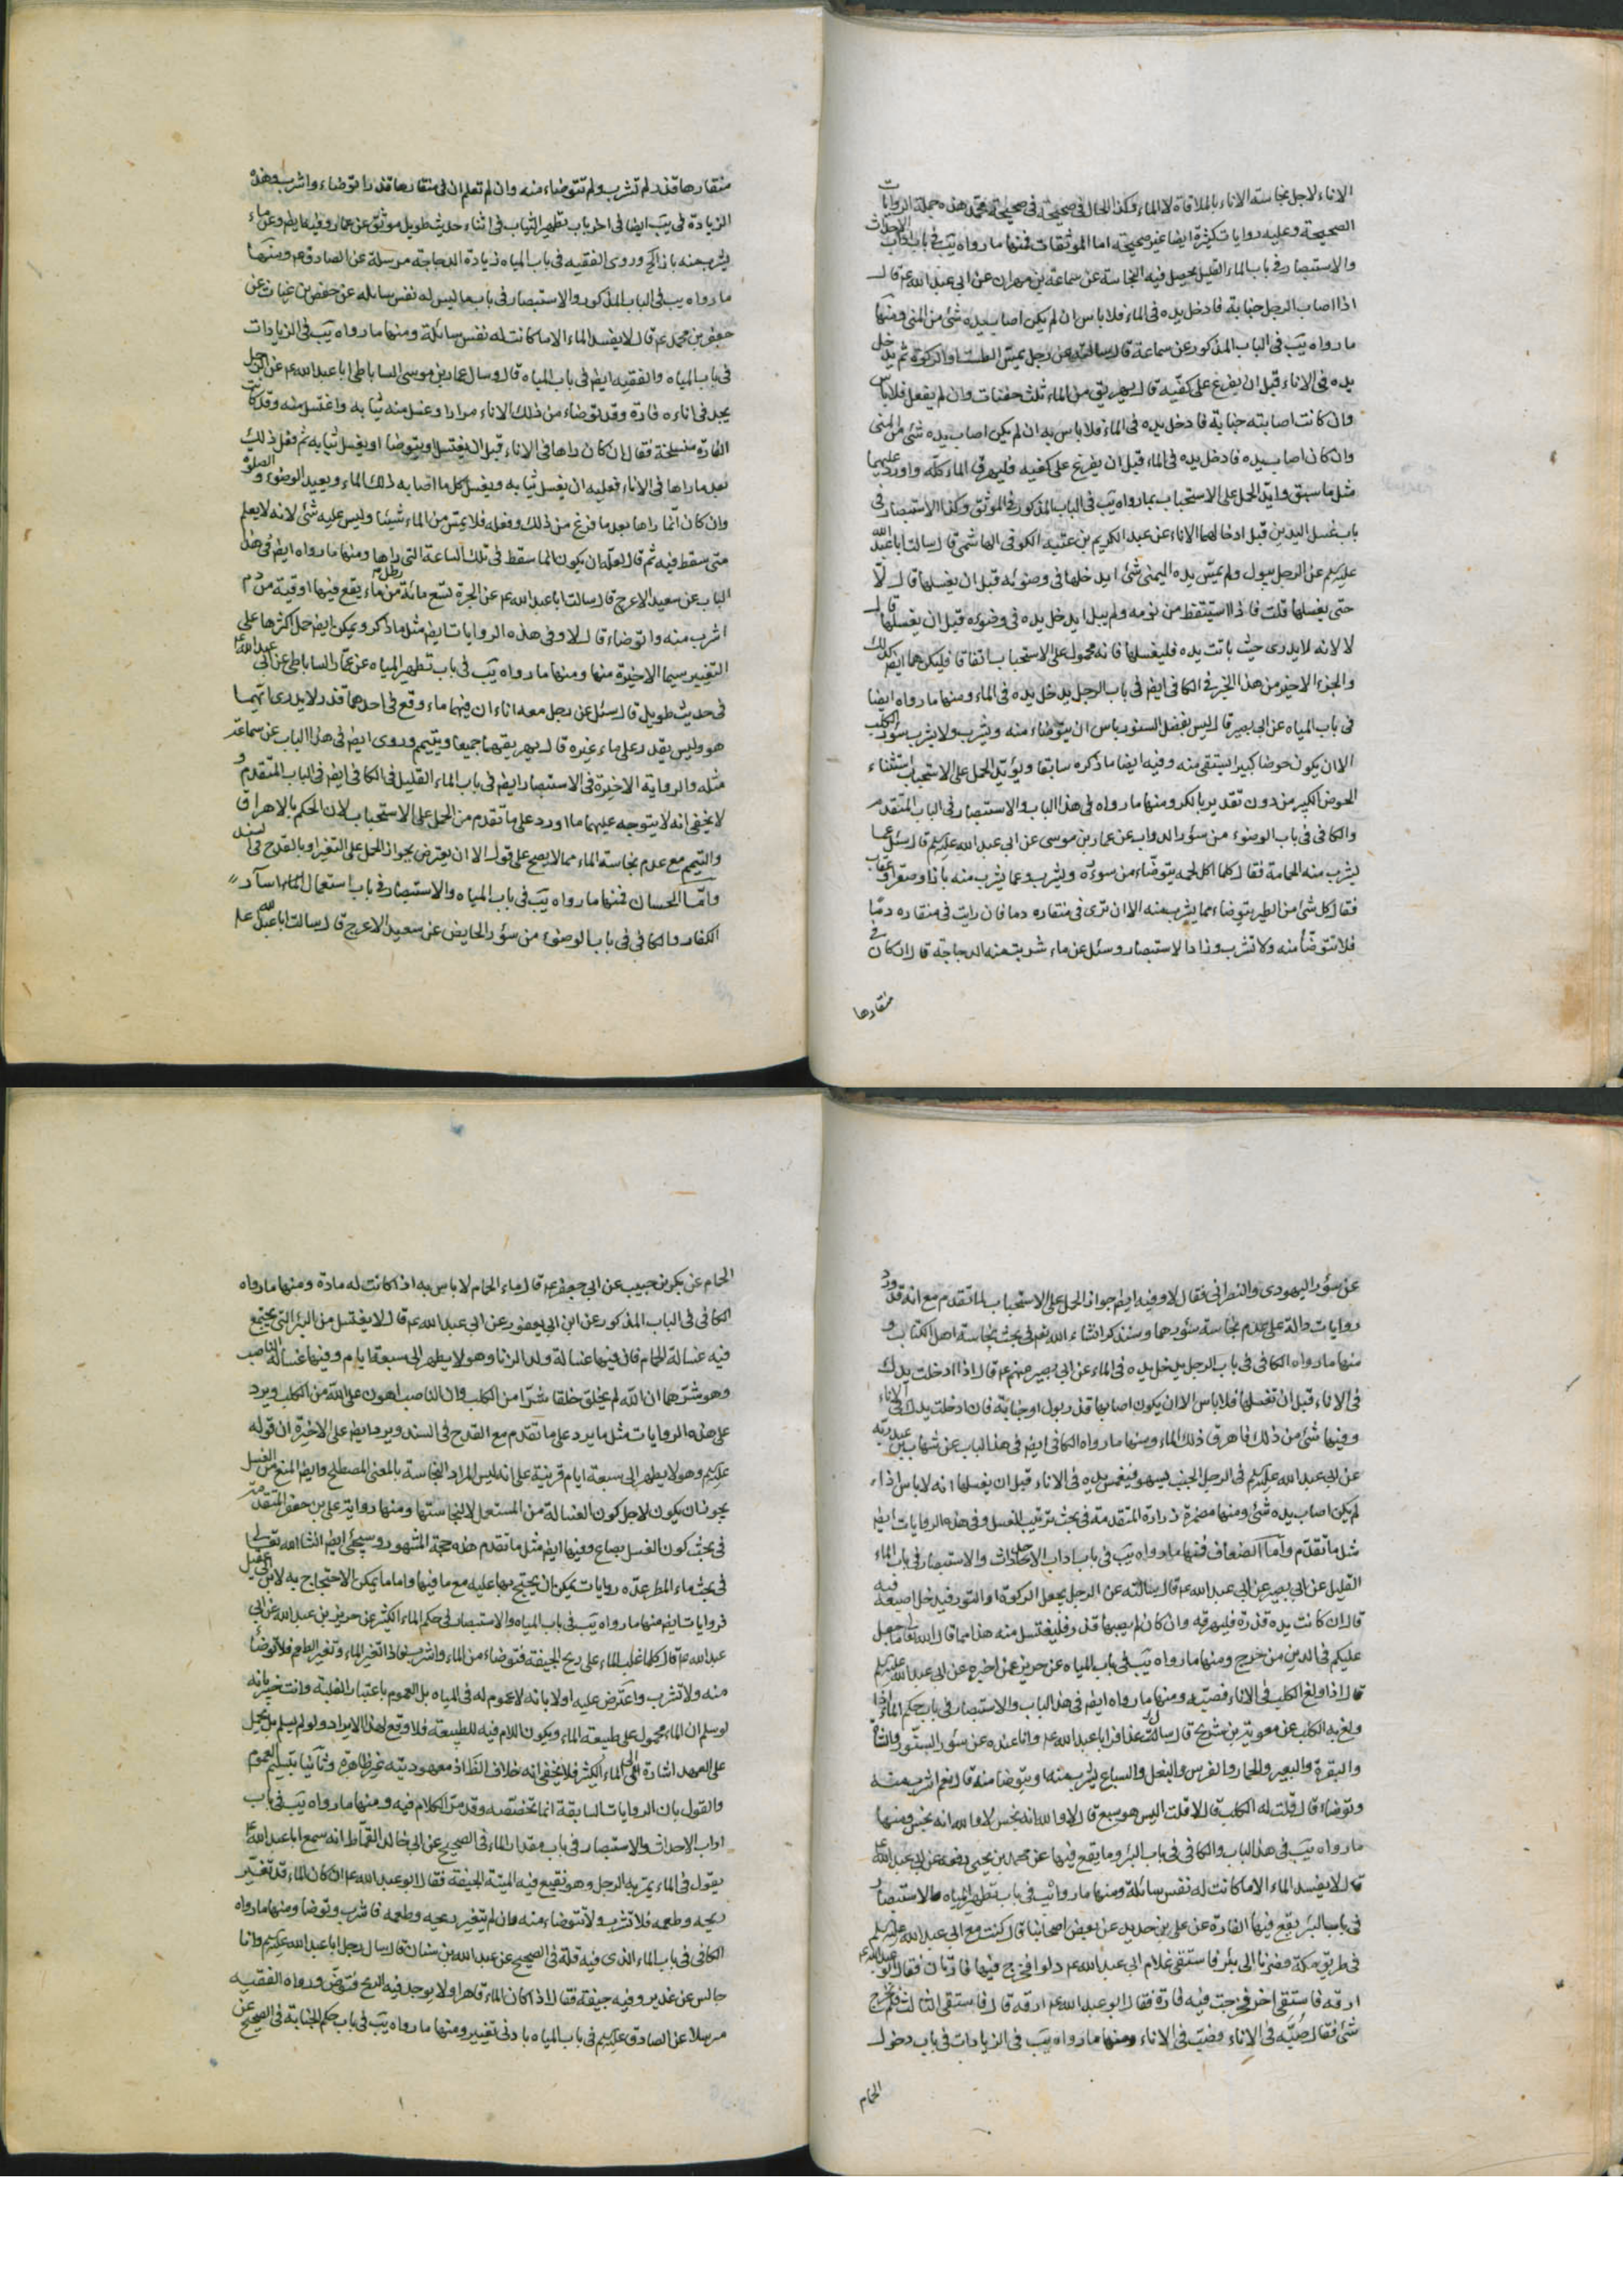 الاناء لاجل نجاسة الاناء بالملاقاة لا الماء وكذا الحال في صحيحته في صحيحة محمد هذه جملة الروايات
الصحيحة وعليه روايات كثيرة ايضا غير صحيحة اما الموثقات فمنها ما رواه يب في باب اداب الاحداث
والاستبصار في باب الماء القليل يحصل فيه النجاسة عن سماعة بن مهران عن ابي عبد الله ع قال
اذا اصاب الرجل جنابة فادخل يده في الماء فلا باس ان لم يكن اصاب يده شئ من المني ومنها
ما رواه يب في الباب المذكور عن سماعة قال سالته عن رجل يمس الطست او الركوة ثم يدخل
يده في الاناء قبل ان يفرغ على كفيه قال يهريق من الماء ثلث حفنات وان لم يفعل فلا باس
وان كانت اصابته جنابة فادخل يده في الماء فلا باس به ان لم يكن اصاب يده شئ من المني
وان كان اصاب يده فادخل يده في الماء قبل ان يفرغ على كفيه فليهرق الماء كله واورد عليهما
مثل ما سبق وايد الحمل على الاستحباب بما رواه يب في الباب المذكور في الموثق وكذا الاستبصار في
باب غسل اليدين قبل ادخالهما الاناء عن عبد الكريم بن عتبة الكوفي الهاشمي قال سالت ابا عبد الله
عليكم عن الرجل يبول ولم يمس يده اليمنى شئ ايدخلها في وضوئه قبل ان يغسلها قال لا
حتى يغسلها قلت فاذا استيقظ من نومه ولم يبل ايدخل يده في وضوئه قبل ان يغسلها قال
لا لانه لا يدرى حيث باتت يده فليغسلها فانه محمول على الاستحباب اتفاقا فليكن هما ايض كذلك
والجزء الاخير من هذا الخبر في الكافي ايض في باب الرجل يدخل يده في الماء ومنها ما رواه ايضا
في باب المياه عن ابي بصير قال ليس بفضل السنور باس ان يتوضاء منه ويشرب ولا يشرب سؤر الكلب
الا ان يكون حوضا كبيرا يستقى منه وفيه ايضا ما ذكره سابقا ويؤيد الحمل على الاستحباب استثناء
الحوض الكبير من دون تقدير بالكر ومنها ما رواه في هذا الباب والاستبصار في الباب المتقدم
والكافي في باب الوضوء من سؤر الدواب عن عمار بن موسى عن ابي عبد الله عليكم قال سئل عما
يشرب منه الحمامة فقال كلما اكل لحمه يتوضاء من سوره ويشرب وعما يشرب منه باز او صقر او عقاب
فقال كل شئ من الطير يتوضاء مما يشرب منه الا ان ترى في منقاره دما فان رايت في منقاره دما
فلا تتوضأ منه ولا تشرب وزاد الاستبصار وسئل عن ماء شربت منه الدجاجة قال ان كان في
منقارها
منقارها قذر لم تشرب ولم تتوضاء منه وان لم تعلم ان في منقارها قذرا توضاء واشرب وهذه
الزيادة في يب ايضا في اخر باب تطهير الثياب في اثناء حديث طويل موثق عن عمار وفيه ايض وعن ماء
يشرب منه باز الخ وروى الفقيه في باب المياه زيادة الدجاجة مرسلة عن الصادق ع ومنها
ما رواه يب في الباب المذكور والاستبصار في باب ما ليس له نفس سائلة عن حفص بن غياث عن
جعفر بن محمد ع قال لا يفسد الماء الا ما كانت له نفس سائلة ومنها ما رواه يب في الزيادات
في باب المياه والفقيه ايض في باب المياه قال وسال عمار بن موسى الساباطي ابا عبد الله ع عن الرجل
يجد في اناءه فارة وقد توضاء من ذلك الاناء مرارا وغسل منه ثيابه واغتسل منه وقد كانت
الفارة منسلخة فقال ان كان راها في الاناء قبل ان يغتسل او يتوضا او يغسل ثيابه ثم فعل ذلك
بعد ما راها في الاناء فعليه ان يغسل ثيابه ويغسل كل ما اصابه ذلك الماء ويعيد الوضوء والصلوة
وان كان انما راها بعد ما فرغ من ذلك وفعله فلا يمس من الماء شيئا وليس عليه شئ لانه لا يعلم
متى سقط فيه ثم قال لعله ان يكون انما سقط في تلك الساعة التي راها ومنها ما رواه ايض في هذا
الباب عن سعيد الاعرج قال سالت ابا عبد الله ع عن الجرة تسع مائة رطل من ماء يقع فيها اوقية من دم
اشرب منه واتوضاء قال لا وفي هذه الروايات ايض مثل ما ذكر ويمكن ايض حمل اكثرها على
التغيير سيما الاخيرة منها ومنها ما رواه يب في باب تطهير المياه عن عمار الساباطي عن ابي عبد الله ع
في حديث طويل قال سئل عن رجل معه اناء ان فيهما ماء وقع في احدهما قذر لا يدرى ايهما
هو وليس يقدر على ماء غيره قال يهريقهما جميعا ويتيمم وروى ايض في هذا الباب عن سماعة
مثله والرواية الاخيرة في الاستبصار ايض في باب الماء القليل في الكافي ايض في الباب المتقدم و
لا يخفى انه لا يتوجه عليهما ما اورد على ما تقدم من الحمل على الاستحباب لان الحكم بالاهراق
والتيمم مع عدم نجاسة الماء مما لا يصح على قول الا ان يعترض بجواز الحمل على التغير او بالقدح في السند
واما الحسان فمنها ما رواه يب في باب المياه والاستبصار في باب استعمال الماء اسآر
الكفار والكافي في باب الوضوء من سؤر الحايض عن سعيد الاعرج قال سالت ابا عبد الله ع
عن سؤر اليهودي والنصراني فقال لا وفيه ايض جواز الحمل على الاستحباب لما تقدم مع انه قد ورد
روايات دالة على عدم نجاسة سؤرهما وسنذكر انشاء الله تعم في بحث نجاسة اهل الكتاب و
منها ما رواه الكافي في باب الرجل يدخل يده في الماء عن ابي بصير عنهم ع قال اذا ادخلت يدك
في الاناء قبل ان تغسلها فلا باس الا ان يكون اصابها قذر بول او جنابة فان ادخلت يدك في الاناء
وفيها شئ من ذلك فاهرق ذلك الماء ومنها ما رواه الكافي ايض في هذا الباب عن شهاب بن عبد ربه
عن ابي عبد الله عليكم في الرجل الجنب يسهو فيغمس يده في الاناء قبل ان يغسلها انه لا باس اذا
لم يكن اصاب يده شئ ومنها مضمرة زرارة المتقدمة في بحث ترتيب الغسل وفي هذه الروايات ايض
مثل ما تقدم واما الضعاف فمنها ما رواه يب في باب اداب الاحداث والاستبصار في باب الماء
القليل عن ابي بصير عن ابي عبد الله ع قال سالته عن الرجل يجعل الركوة او التور فيدخل اصبعه فيه
قال ان كانت يده قذرة فليهرقه وان كان لم يصبها قذر فليغتسل منه هذا مما قال الله تعالى ما جعل
عليكم في الدين من حرج ومنها ما رواه يب في باب المياه عن حريز عمن اخبره عن ابي عبد الله عليكم
قال اذا ولغ الكلب في الاناء فصبه ومنها ما رواه ايض في هذا الباب والاستبصار في باب حكم الماء اذا
ولغ به الكلب عن معوية بن شريح قال سال عذافر ابا عبد الله ع وانا عنده عن سؤر السنور والشاة
والبقرة والبعير والحمار والفرس والبغل والسباع يشرب منه او يتوضا منه قال نعم اشرب منه
وتوضاء قال قلت له الكلب قال لا قلت اليس هو سبع قال لا والله انه نجس لا والله انه نجس ومنها
ما رواه يب في هذا الباب والكافي في باب البئر وما يقع فيها عن محمد بن يحيى رفعه عن ابي عبد الله ع
قال لا يفسد الماء الا ما كانت له نفس سائلة ومنها ما رواه يب في باب تطهير المياه والاستبصار
في باب البئر يقع فيها الفارة عن علي بن حديد عن بعض اصحابنا قال كنت مع ابي عبد الله عليكم
في طريق مكة فصرنا الى بئر فاستقى غلام ابي عبد الله ع دلوا فخرج فيها فارتان فقال ابو عبد الله ع
ارقه فاستقى اخر فخرجت فيه فارة فقال ابو عبد الله ع ارقه قال فاستقى الثالث فلم يخرج
شئ فقال صبه في الاناء فصبه في الاناء ومنها ما رواه يب في الزيادات في باب دخول
الحمام
الحمام عن بكر بن حبيب عن ابي جعفر ع قال ماء الحمام لا باس به اذا كانت له مادة ومنها ما رواه
الكافي في الباب المذكور عن ابن ابي يعفور عن ابي عبد الله ع قال لا يغتسل من البئر التي يجتمع
فيه غسالة الحمام فان فيها غسالة ولد الزنا وهو لا يطهر الى سبعة ايام وفيها غسالة الناصب
وهو شرهما ان الله لم يخلق خلقا شرا من الكلب وان الناصب اهون على الله من الكلب ويرد
على هذه الروايات مثل ما يرد على ما تقدم مع القدح في السند ويرد ايض على الاخيرة ان قوله
عليكم وهو لا يطهر الى سبعة ايام قرينة على انه ليس المراد النجاسة بالمعنى المصطلح وايض المنع من الغسل
يجوز ان يكون لاجل كون الغسالة من المستعمل لا لنجاستها ومنها رواية علي بن جعفر المتقدمة
في بحث كون الغسل بصاع وفيها ايض مثل ما تقدم هذه حجة المشهور وسيجئ ايض انشاء الله تعالى
في بحث ماء المطر عدة روايات يمكن ان يحتج بها عليه مع ما فيها واما ما يمكن الاحتجاج به لابن ابي عقيل
فروايات ايض منها ما رواه يب في باب المياه والاستبصار في حكم الماء الكثير عن حريز بن عبد الله عن ابي
عبد الله ع قال كلما غلب الماء على ريح الجيفة فتوضاء من الماء واشرب فاذا تغير الماء وتغير الطعم فلا توضأ
منه ولا تشرب واعترض عليه اولا بانه لا عموم له في المياه بل العموم باعتبار الغلبة وانت خبير بانه
لو سلم ان الماء محمول على طبيعة الماء ويكون اللام فيه للطبيعة فلا وقع لهذا الايراد ولو لم يسلم بل يحمل
على العهد اشارة الى الماء الكثير فلا يخفى انه خلاف الظ اذ معهوديته غير ظاهرة وثانيا بتسليم العموم
والقول بان الروايات السابقة انما تخصصه وقد مر الكلام فيه ومنها ما رواه يب في باب
اداب الاحداث والاستبصار في باب مقدار الماء في الصحيح عن ابي خالد القماط انه سمع ابا عبد الله ع
يقول في الماء يمر به الرجل وهو نقيع فيه الميتة الجيفة فقال ابو عبد الله ع ان كان الماء قد تغير
ريحه وطعمه فلا تشرب ولا تتوضاء منه وان لم يتغير ريحه وطعمه فاشرب وتوضا ومنها ما رواه
الكافي في باب الماء الذي فيه قلة في الصحيح عن عبد الله بن سنان قال سال رجل ابا عبد الله عليكم وانا
جالس عن غدير وفيه جيفة فقال اذا كان الماء قاهرا ولا يوجد فيه الريح فتوض ورواه الفقيه
مرسلا عن الصادق عليكم في باب المياه بادنى تغيير ومنها ما رواه يب في باب حكم الجنابة في الصحيح عن